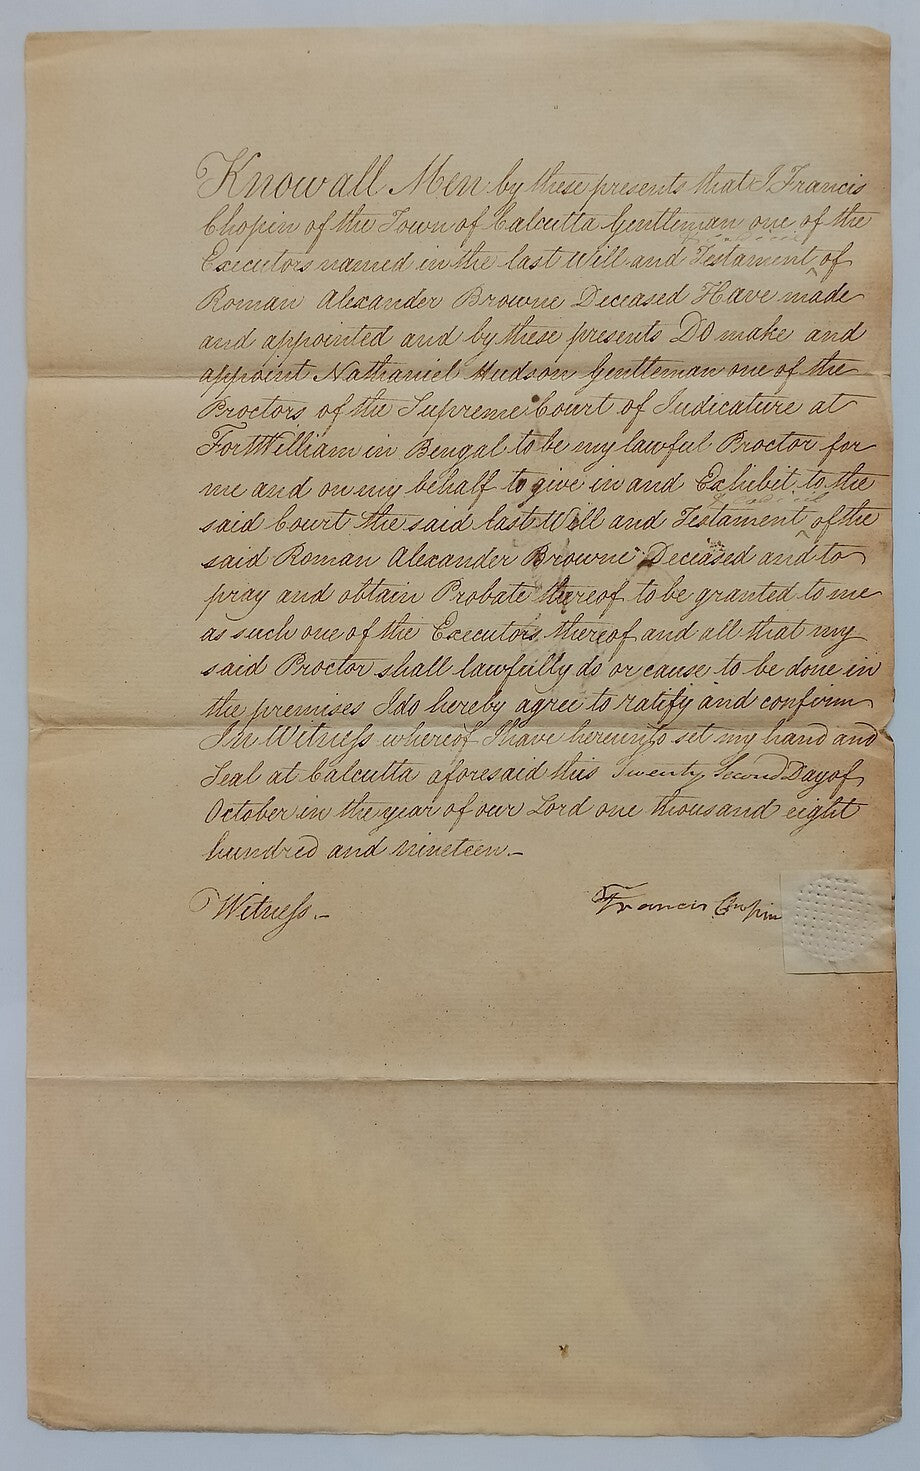 Know all Men by these presents that I Francis
Chopin of the Town of Calcutta Gentleman one of the
Executors named in the last Will and Testament of
Roman Alexander Browne Deceased Have made
and appointed and by these presents Do make and
appoint Nathaniel Hudson Gentleman one of the
Proctors of the Supreme Court of Judicature at
Fort William in Bengal to be my lawful Proctor for
me and on my behalf to give in and Exhibit to the
said Court the said last Will and Testament of the
said Roman Alexander Browne Deceased and to
pray and obtain Probate thereof to be granted to me
as such one of the Executors thereof and all that my
said Proctor shall lawfully do or cause to be done in
the premises I do hereby agree to ratify and confirm
In Witness whereof I have hereunto set my hand and
Seal at Calcutta aforesaid this Twenty Second Day of
October in the year of our Lord one thousand eight
hundred and nineteen.-
Witness.-
Francis Chopin